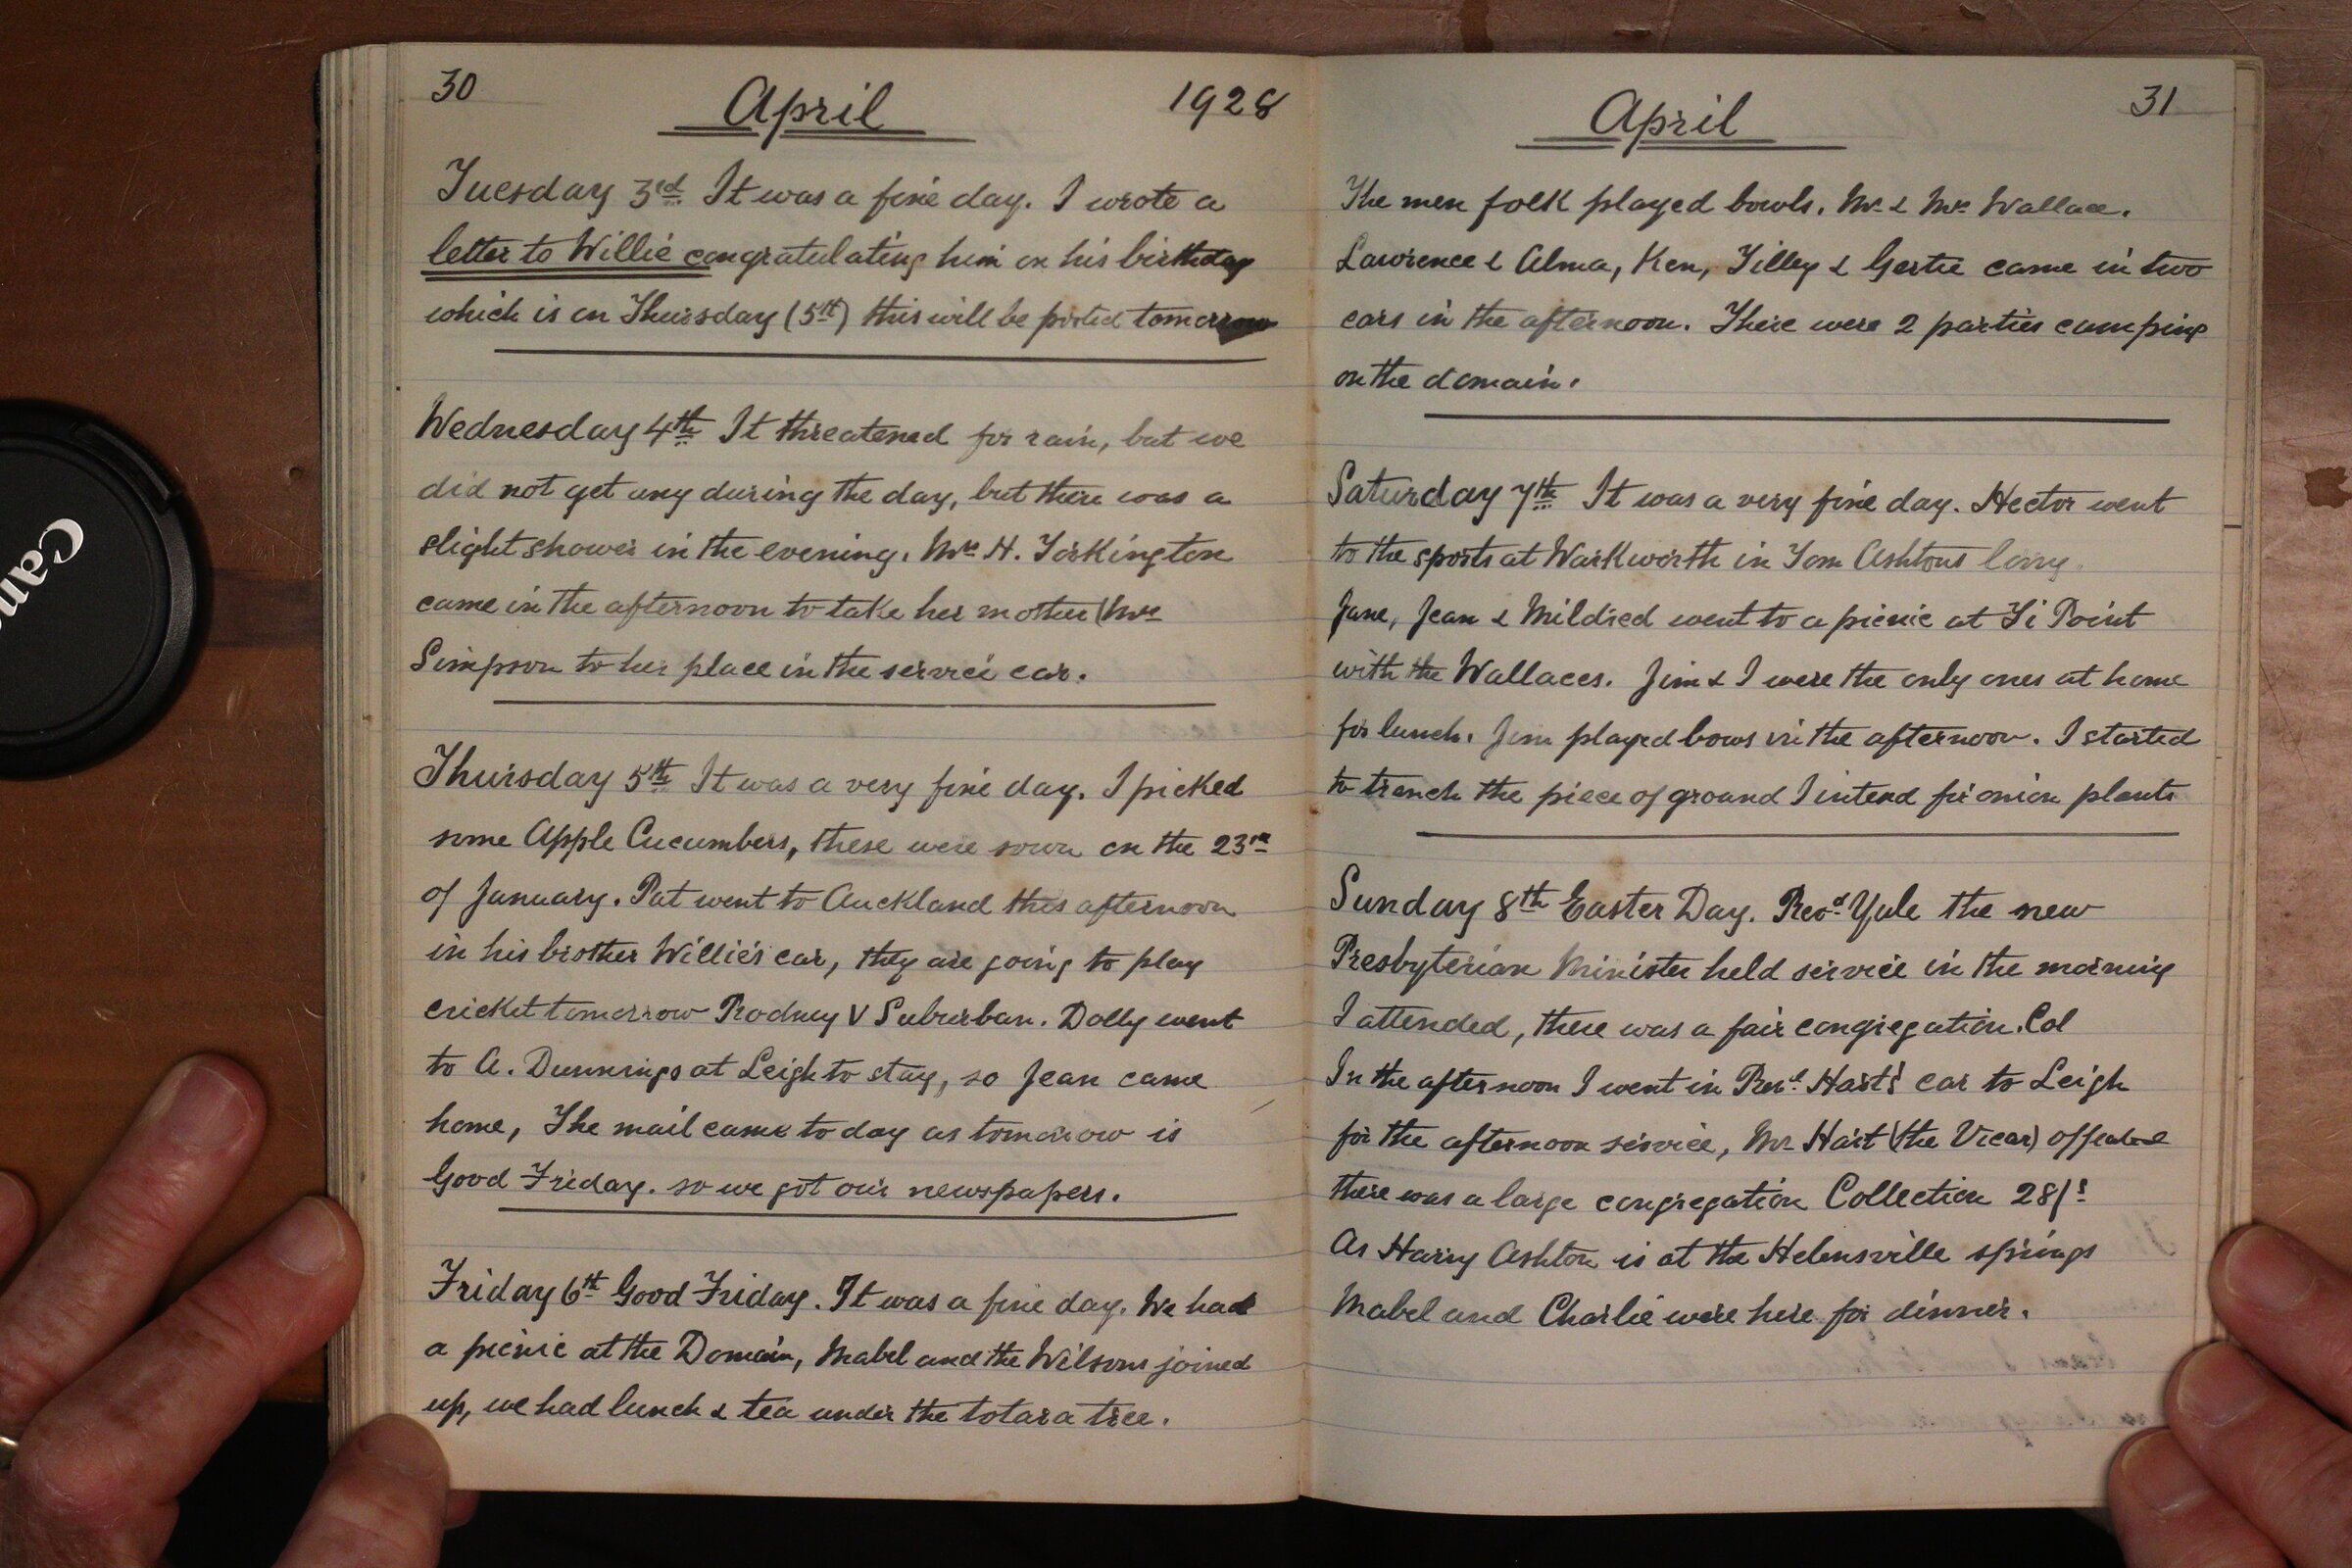 30 April 1928
Tuesday 3rd It was a fine day. I wrote a
letter to Willie congratulating him on his birthday
which is on Thursday (5th) this will be posted tomorrow
Wednesday 4th It threatened for rain, but we
did not get any during the day, but there was a
slight shower in the evening. Mrs H. Torkington
came in the afternoon to take her mother (Mrs
Simpson to her place in the service car.
Thursday 5th It was a very fine day. I picked
some Apple Cucumbers, these were sown on the 23rd
of January. Pat went to Auckland this afternoon
in his brother Willie's car, they are going to play
cricket tomorrow Rodney V Suburban. Dolly went
to A. Dunnings at Leigh to stay, so Jean came
home, The mail came to day as tomorrow is
Good Friday. so we got our newspapers.
Friday 6th Good Friday. It was a fine day. We had
a picnic at the Domain, Mabel and the Wilsons joined
up, we had lunch & tea under the totara tree.
April 31
The men folk played bowls. Mr & Mrs Wallace.
Lawrence & Alma, Ken, Tilley & Gertie came in two
cars in the afternoon. There were 2 parties camping
on the domain.
Saturday 7th It was a very fine day. Hector went
to the sports at Warkworth in Tom Ashtons lorry.
Jane, Jean & Mildred went to a picnic at Ti Point
with the Wallaces. Jim & I were the only ones at home
for lunch. Jim played bows in the afternoon. I started
to trench the piece of ground I intend for onion plants
Sunday 8th Easter Day. Revd Yule the new
Presbyterian Minister held service in the morning
I attended, there was a fair congregation. Col
In the afternoon I went in Revd Hart's car to Leigh
for the afternoon service, Mr Hart (the Vicar)
there was a large congregation Collection 28/s
As Harry Ashton is at the Helensville springs
Mabel and Charlie were here for dinner.
Canon